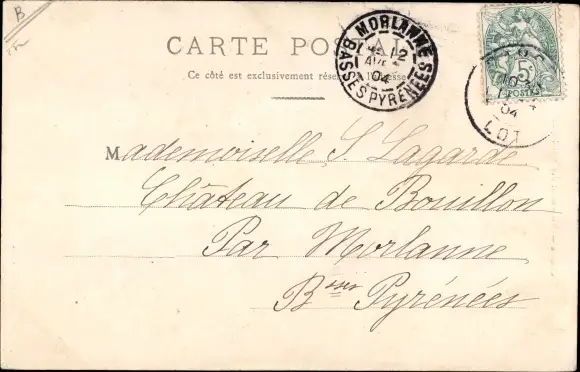 B
CARTE POSTALE
Ce côté est exclusivement réservé à l'adresse
MORLANNE
12
AVRIL
04
BASSES PYRÉNÉES
5c
POSTES
10
04
LOT
Mademoiselle S. Lagarde
Château de Bouillon
Par Morlanne
Bsses Pyrénées